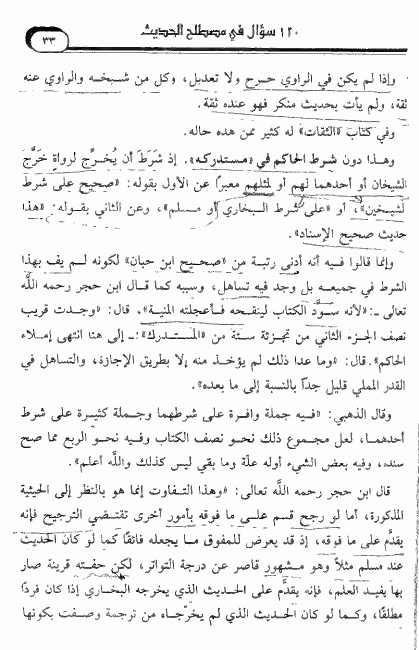 ١٢٠ سؤال في مصطلح الحديث
٣٣
وإذا لم يكن في الراوي جرح ولا تعديل، وكل من شيخه والراوي عنه
ثقة، ولم يأت بحديث منكر فهو عنده ثقة.
وفي كتاب «الثقات» له كثير ممن هذه حاله.
وهذا دون شرط الحاكم في «مستدركه». إذ شَرَطَ أن يُخرِّج لرواةٍ خَرَّج
الشيخان أو أحدهما لهم أو لمثلهم معبرًا عن الأول بقوله: «صحيح على شرط
لشيخين»، أو «على شرط البخاري أو مسلم»، وعن الثاني بقوله: «هذا
حديث صحيح الإسناد».
وإنما قالوا فيه أنه أدنى رتبة من «صحيح ابن حبان» لكونه لم يف بهذا
الشرط في جميعه بل وجد فيه تساهل، وسببه كما قال ابن حجر رحمه اللَّه
تعالى ـ: «لأنه سوَّد الكتاب لينقحه فأعجلته المنية»، قال: «وجدت قريب
نصف الجزء الثاني من تجزئة ستة من «المستدرك»: ـ إلى هنا انتهى إملاء
الحاكم». قال: «وما عدا ذلك لم يؤخذ منه إلا بطريق الإجازة، والتساهل في
القدر المملي قليل جدًا بالنسبة إلى ما بعده».
وقال الذهبي: «فيه جملة وافرة على شرطهما وجملة كثيرة على شرط
أحدهما، لعل مجموع ذلك نحو نصف الكتاب وفيه نحو الربع مما صح
سنده، وفيه بعض الشيء أوله علّة وما بقي ليس كذلك واللَّه أعلم».
قال ابن حجر رحمه اللَّه تعالى: «وهذا التفاوت إنما هو بالنظر إلى الحيثية
المذكورة، أما لو رجح قسم على ما فوقه بأمور أخرى تقتضي الترجيح فإنه
يقدَّم على ما فوقه، إذ قد يعرض للمفوق ما يجعله فائقًا كما لو كان الحديث
عند مسلم مثلاً وهو مشهور قاصر عن درجة التواتر، لكن حفته قرينة صار
بها يفيد العلم، فإنه يقدَّم على الحديث الذي يخرجه البخاري إذا كان فردًا
مطلقًا، وكما لو كان الحديث الذي لم يخرّجاه من ترجمة وصفت بكونها